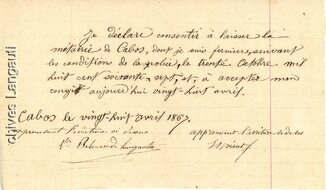 Je déclare consentir à laisser la
métairie de Cabos, dont je suis fermier, suivant
les conditions de la police, le trente octobre mil
huit cent soixante-sept, et à accepter mon
congé aujourd'hui vingt-huit avril.
Cabos le vingt-huit avril 1867.
approuvant l'écriture ci dessus
approuvant l'écriture ci-dessus
chives Langauti